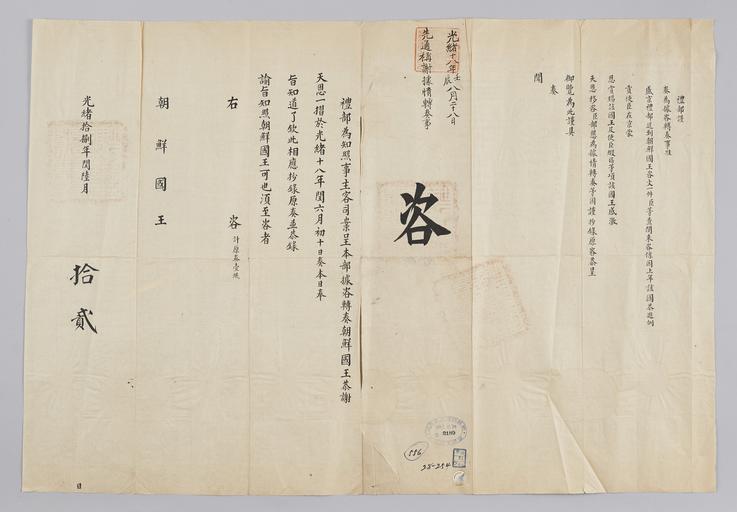 禮部謹
奏為據咨轉奏事准
盛京禮部送到朝鮮國王咨文一件臣等查閱来咨係因上年該國恭進例
貢使臣在京蒙
恩賞賜該國王及使臣緞疋等項該國王感激
天恩移咨臣部懇為據情轉奏等因謹抄錄原咨恭呈
御覽為此謹具
奏
聞
光緒十八年壬辰八月二十八日
先通稱謝據情轉奏事
咨
禮部為知照事主客司案呈本部據咨轉奏朝鮮國王恭謝
天恩一摺於光緒十八年閏六月初十日奏本日奉
旨知道了欽此相應抄錄原奏並恭錄
諭旨知照朝鮮國王可也須至咨者
右咨 計原奏壹紙
朝鮮國王
光緒拾捌年閏陸月
拾貳
日
2189
556
28-254